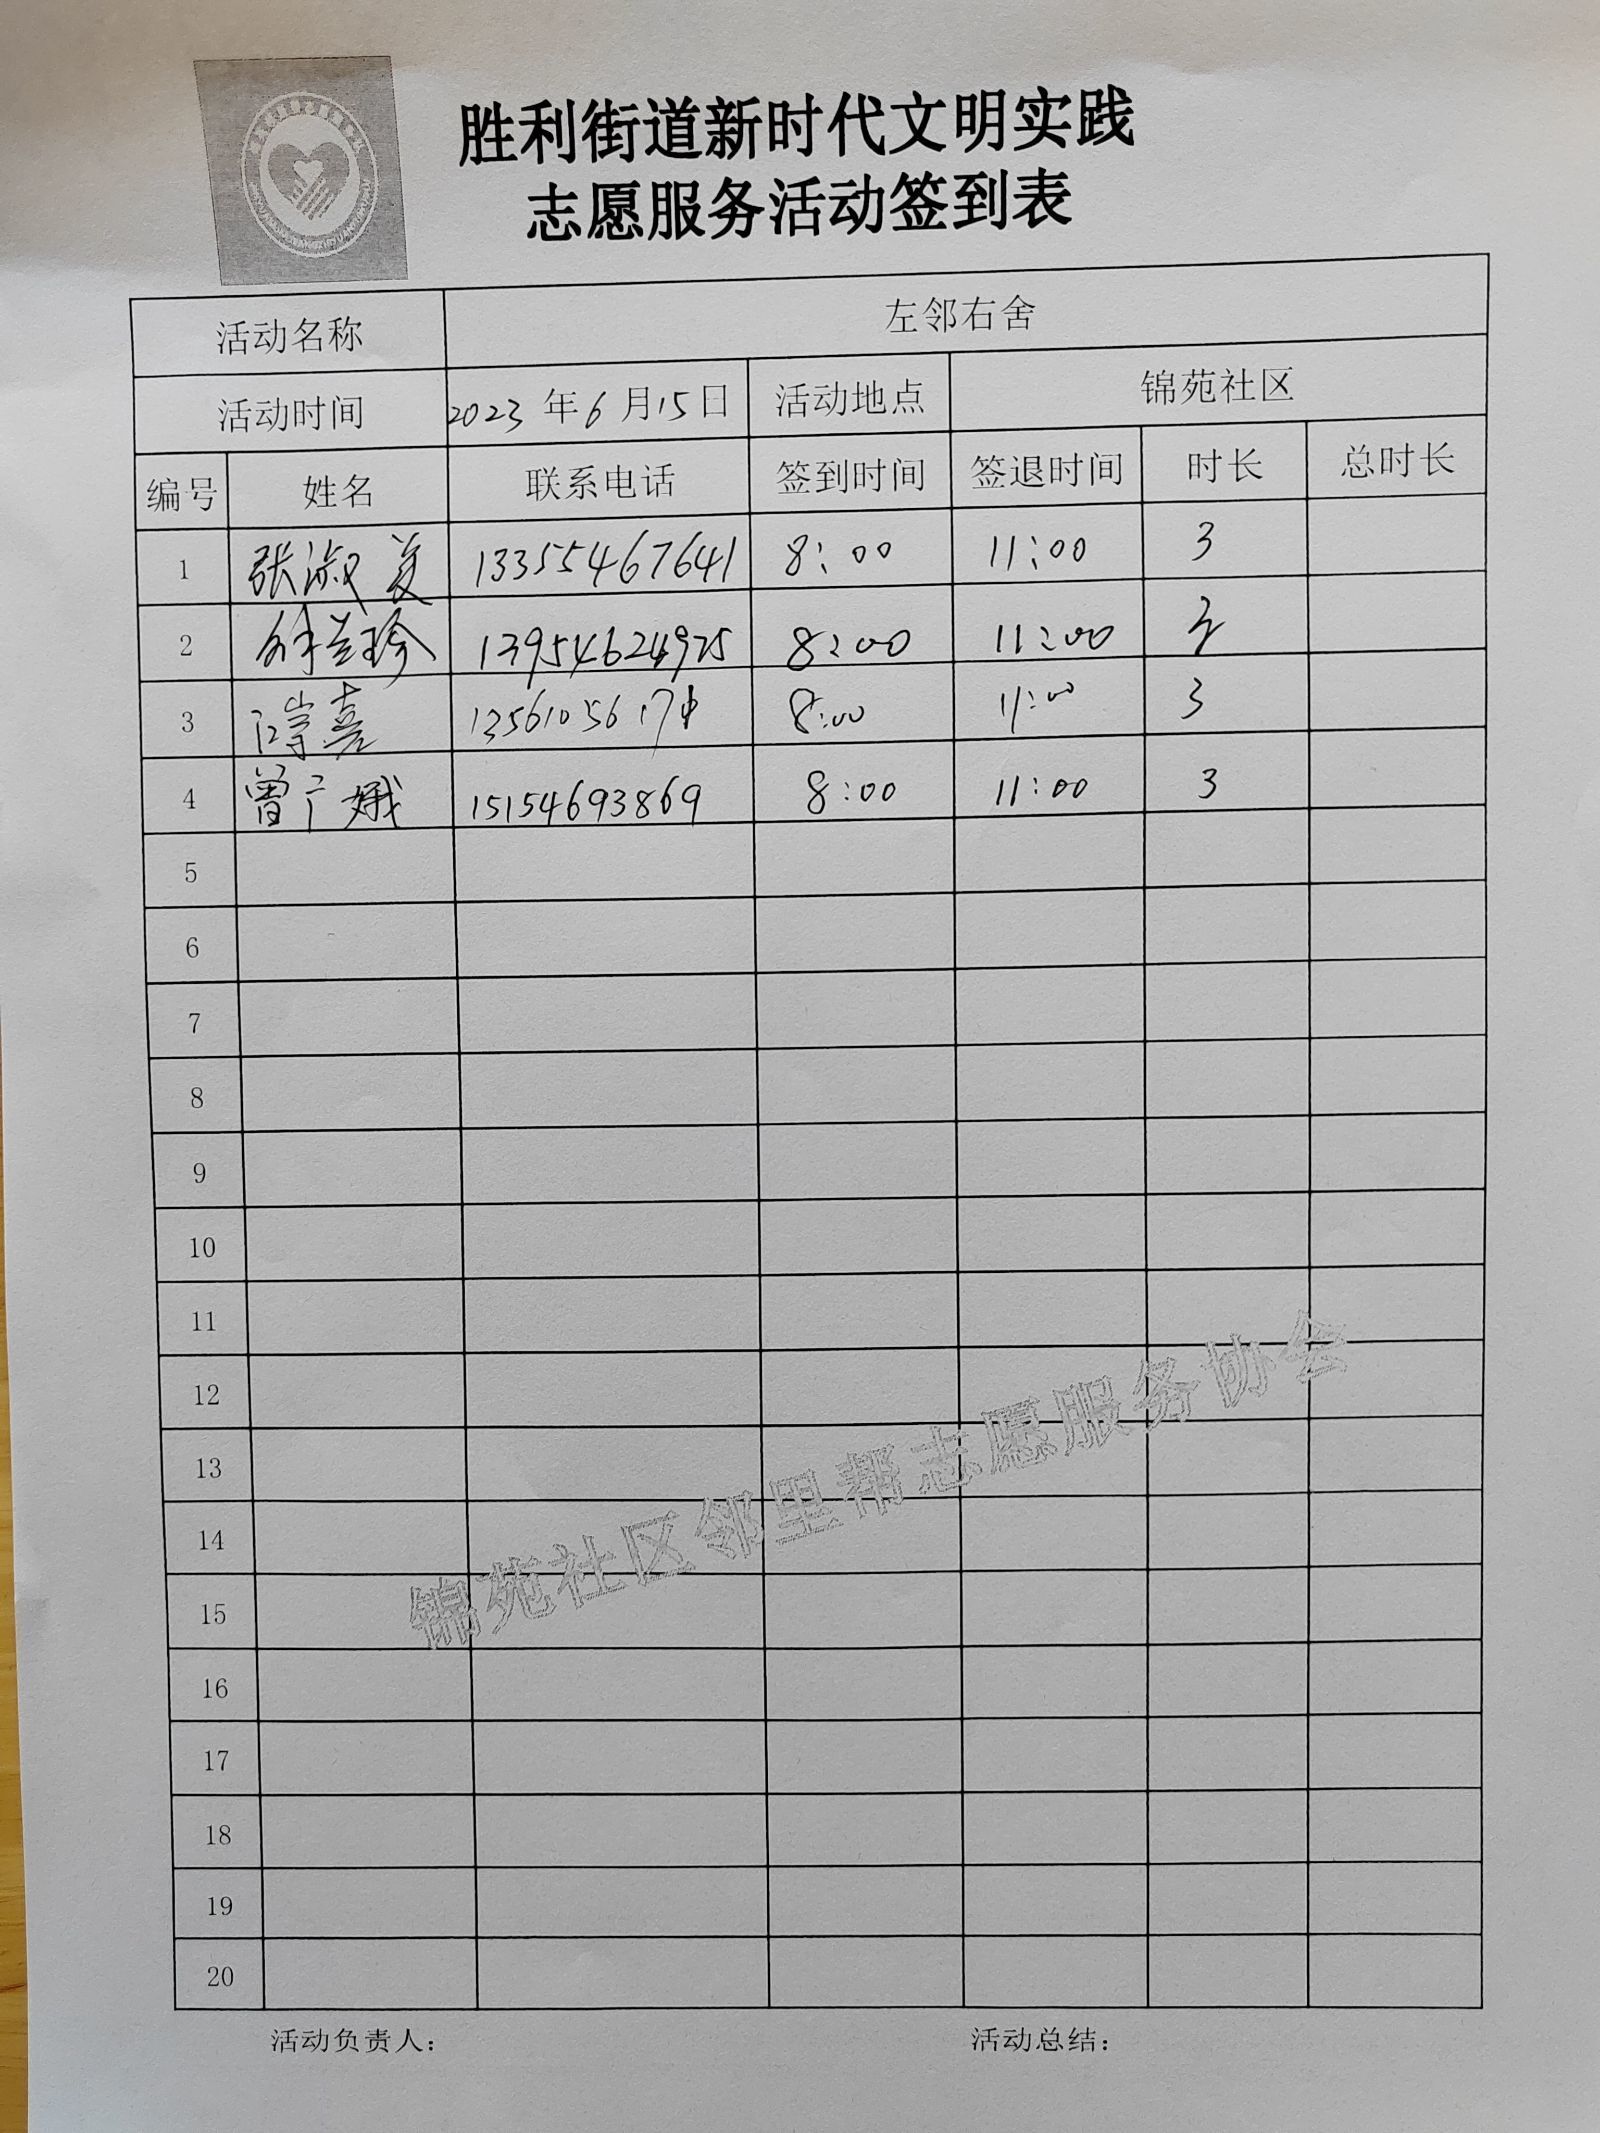 胜利街道新时代文明实践
志愿服务活动签到表
活动名称 左邻右舍
活动时间 2023年6月15日 活动地点 锦苑社区
编号 姓名 联系电话 签到时间 签退时间 时长 总时长
1 张淑 13355467641 8:00 11:00 3
2 兰珍 13954624925 8:00 11:00 3
3 喜 1356105617 8:00 11:00 3
4 曾广娥 15154693869 8:00 11:00 3
5
6
7
8
9
10
11
12
13
14
15
16
17
18
19
20
锦苑社区邻里帮志愿服务协会
活动负责人： 活动总结：